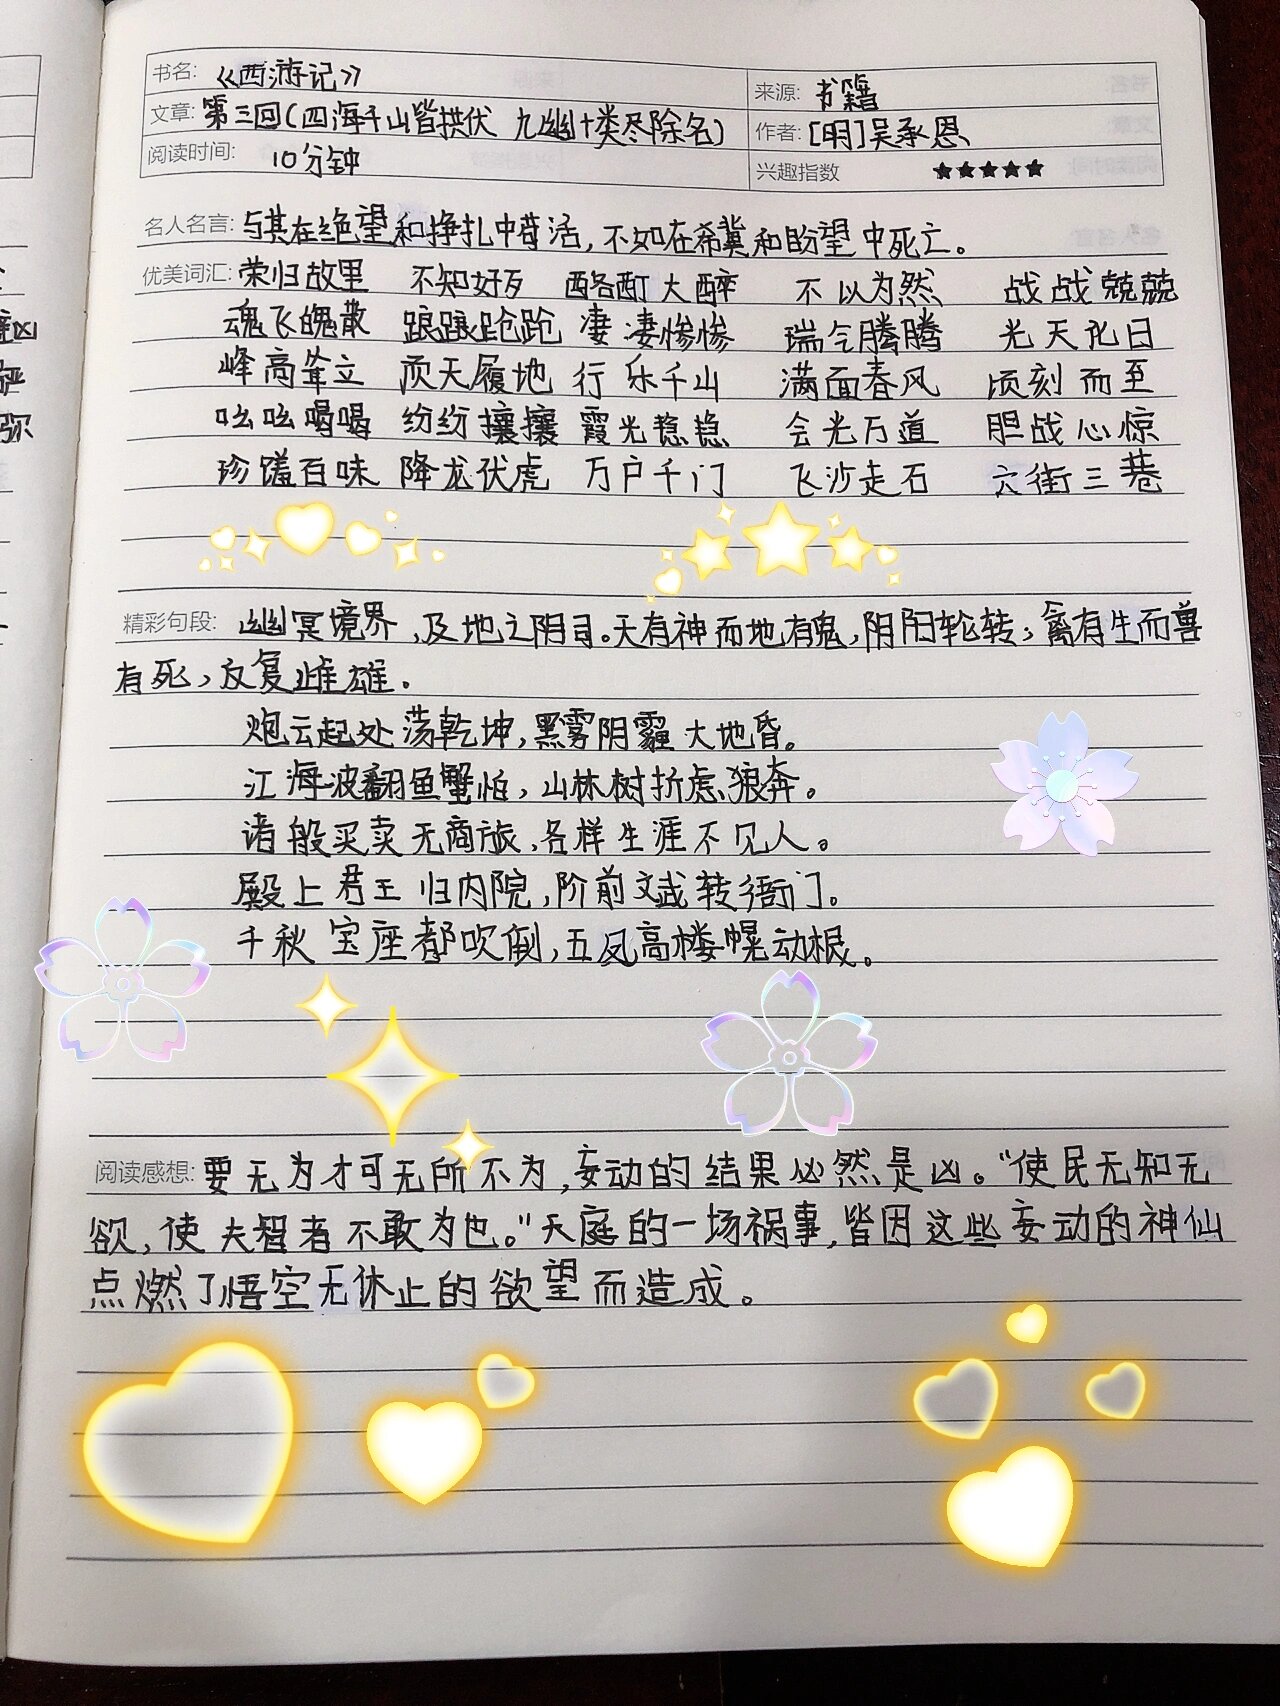 书名: 《西游记》
来源: 书籍
文章: 第三回(四海千山皆拱伏 九幽十类尽除名)
作者: [明]吴承恩
阅读时间: 10分钟
兴趣指数 ★★★★★
名人名言: 与其在绝望和挣扎中苟活,不如在希冀和盼望中死亡。
优美词汇: 荣归故里 不知好歹 酩酊大醉 不以为然 战战兢兢
魂飞魄散 踉踉跄跄 凄凄惨惨 瑞气腾腾 光天化日
峰高耸立 顶天履地 行乐千山 满面春风 顷刻而至
吆吆喝喝 纷纷攘攘 霞光稳稳 会光万道 胆战心惊
珍馐百味 降龙伏虎 万户千门 飞沙走石 六街三巷
精彩句段: 幽冥境界,及地之阴司。天有神而地有鬼,阴阳轮转;禽有生而兽
有死,反复雌雄。
炮云起处荡乾坤,黑雾阴霾大地昏。
江海波翻鱼蟹怕,山林树折虑狼奔。
诸般买卖无商旅,各样生涯不见人。
殿上君王归内院,阶前文武转衙门。
千秋宝座都吹倒,五凤高楼幌动根。
阅读感想: 要无为才可无所不为,妄动的结果必然是凶。“使民无知无
欲,使夫智者不敢为也。”天庭的一场祸事,皆因这些妄动的神仙
点燃了悟空无休止的欲望而造成。